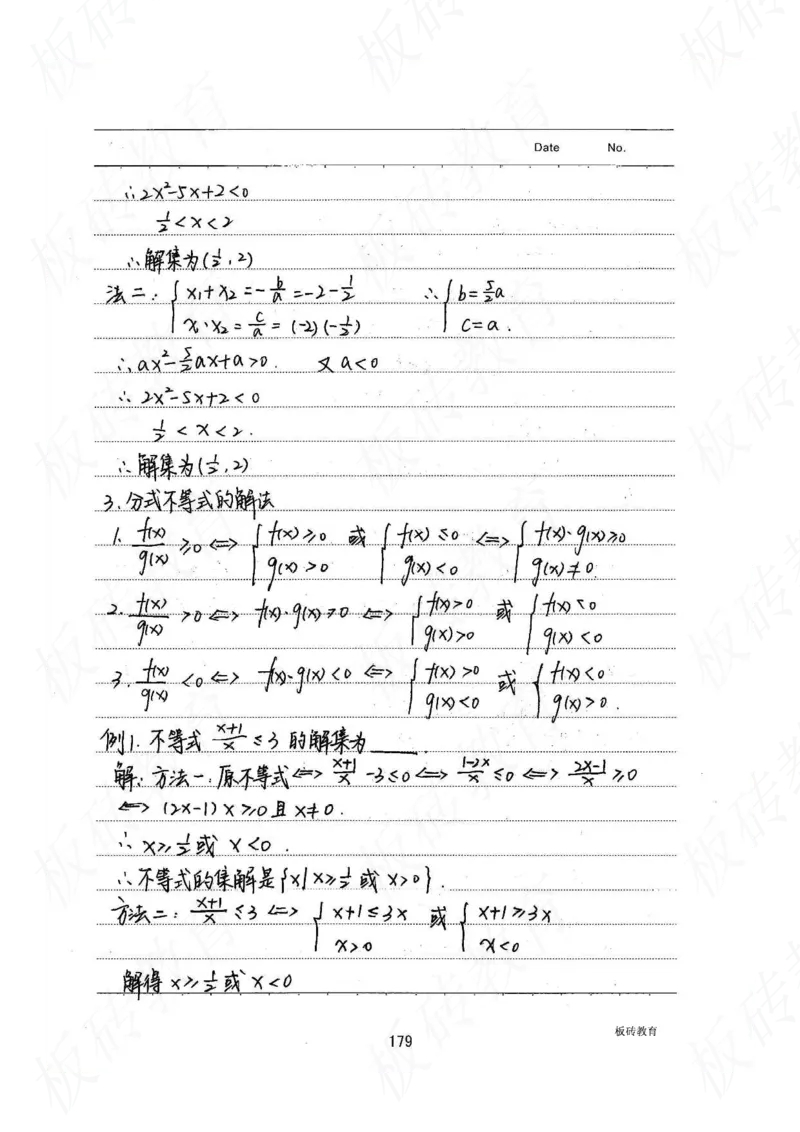 Date No.
∴2x²-5x+2<0
½<x<2
∴解集为(½,2)
法二: { x₁+x₂=-b/a=-2-½ ∴{ b=5/2a
x₁·x₂=c/a=(-2)(-½) c=a.
∴ax²-5/2ax+a>0. 又a<0
∴2x²-5x+2<0
½<x<2.
∴解集为(½,2)
3.分式不等式的解法
1. f(x)/g(x)≥0⟺{ f(x)≥0 或 { f(x)≤0 ⟺{ f(x)·g(x)≥0
g(x)>0 g(x)<0 g(x)≠0
2. f(x)/g(x)>0⟺f(x)·g(x)>0⟺{ f(x)>0 或 { f(x)<0
g(x)>0 g(x)<0
3. f(x)/g(x)<0⟺f(x)·g(x)<0⟺{ f(x)>0 或 { f(x)<0
g(x)<0 g(x)>0.
例1.不等式 (x+1)/x≤3的解集为____.
解:方法一:原不等式⟺(x+1)/x-3≤0⟺(1-2x)/x≤0⟺(2x-1)/x≥0
⟺(2x-1)x≥0且x≠0.
∴x≥½或x<0.
∴不等式的集解是{x|x≥½或x>0}.
方法二:(x+1)/x≤3⟺{ x+1≤3x 或 { x+1≥3x
x>0 x<0
解得x≥½或x<0
179
板砖教育